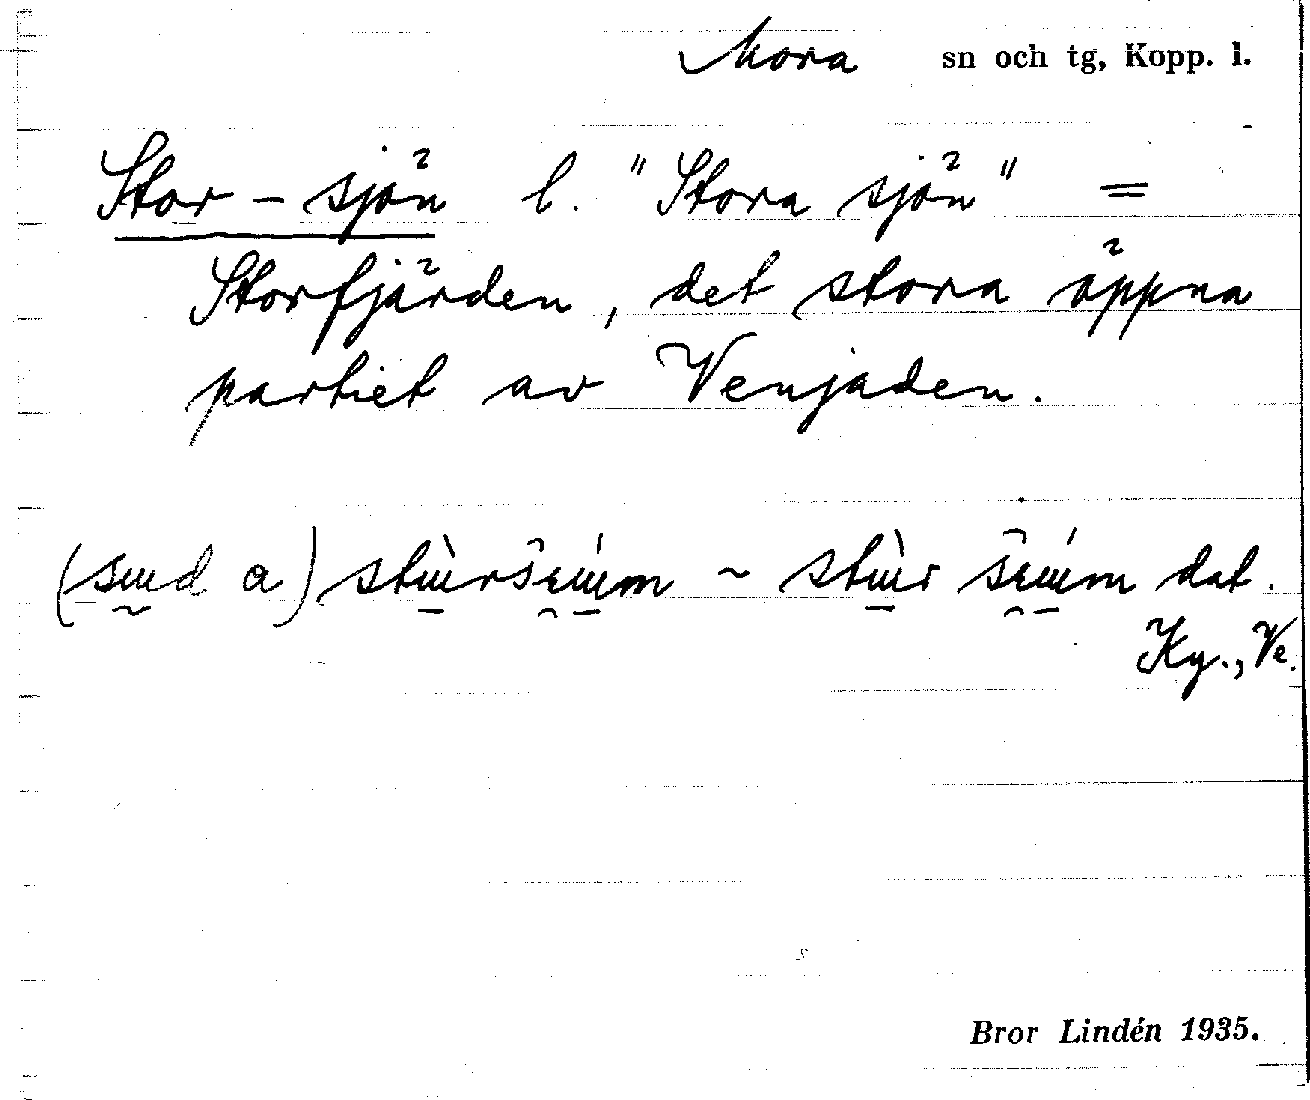 Mora sn och tg, Kopp. l.
Stor-sjön l. "Stora sjön" =
Storfjärden, det stora öppna
partiet av Venjaden.
dat.
Ky., Ve.
Bror Lindén 1935.